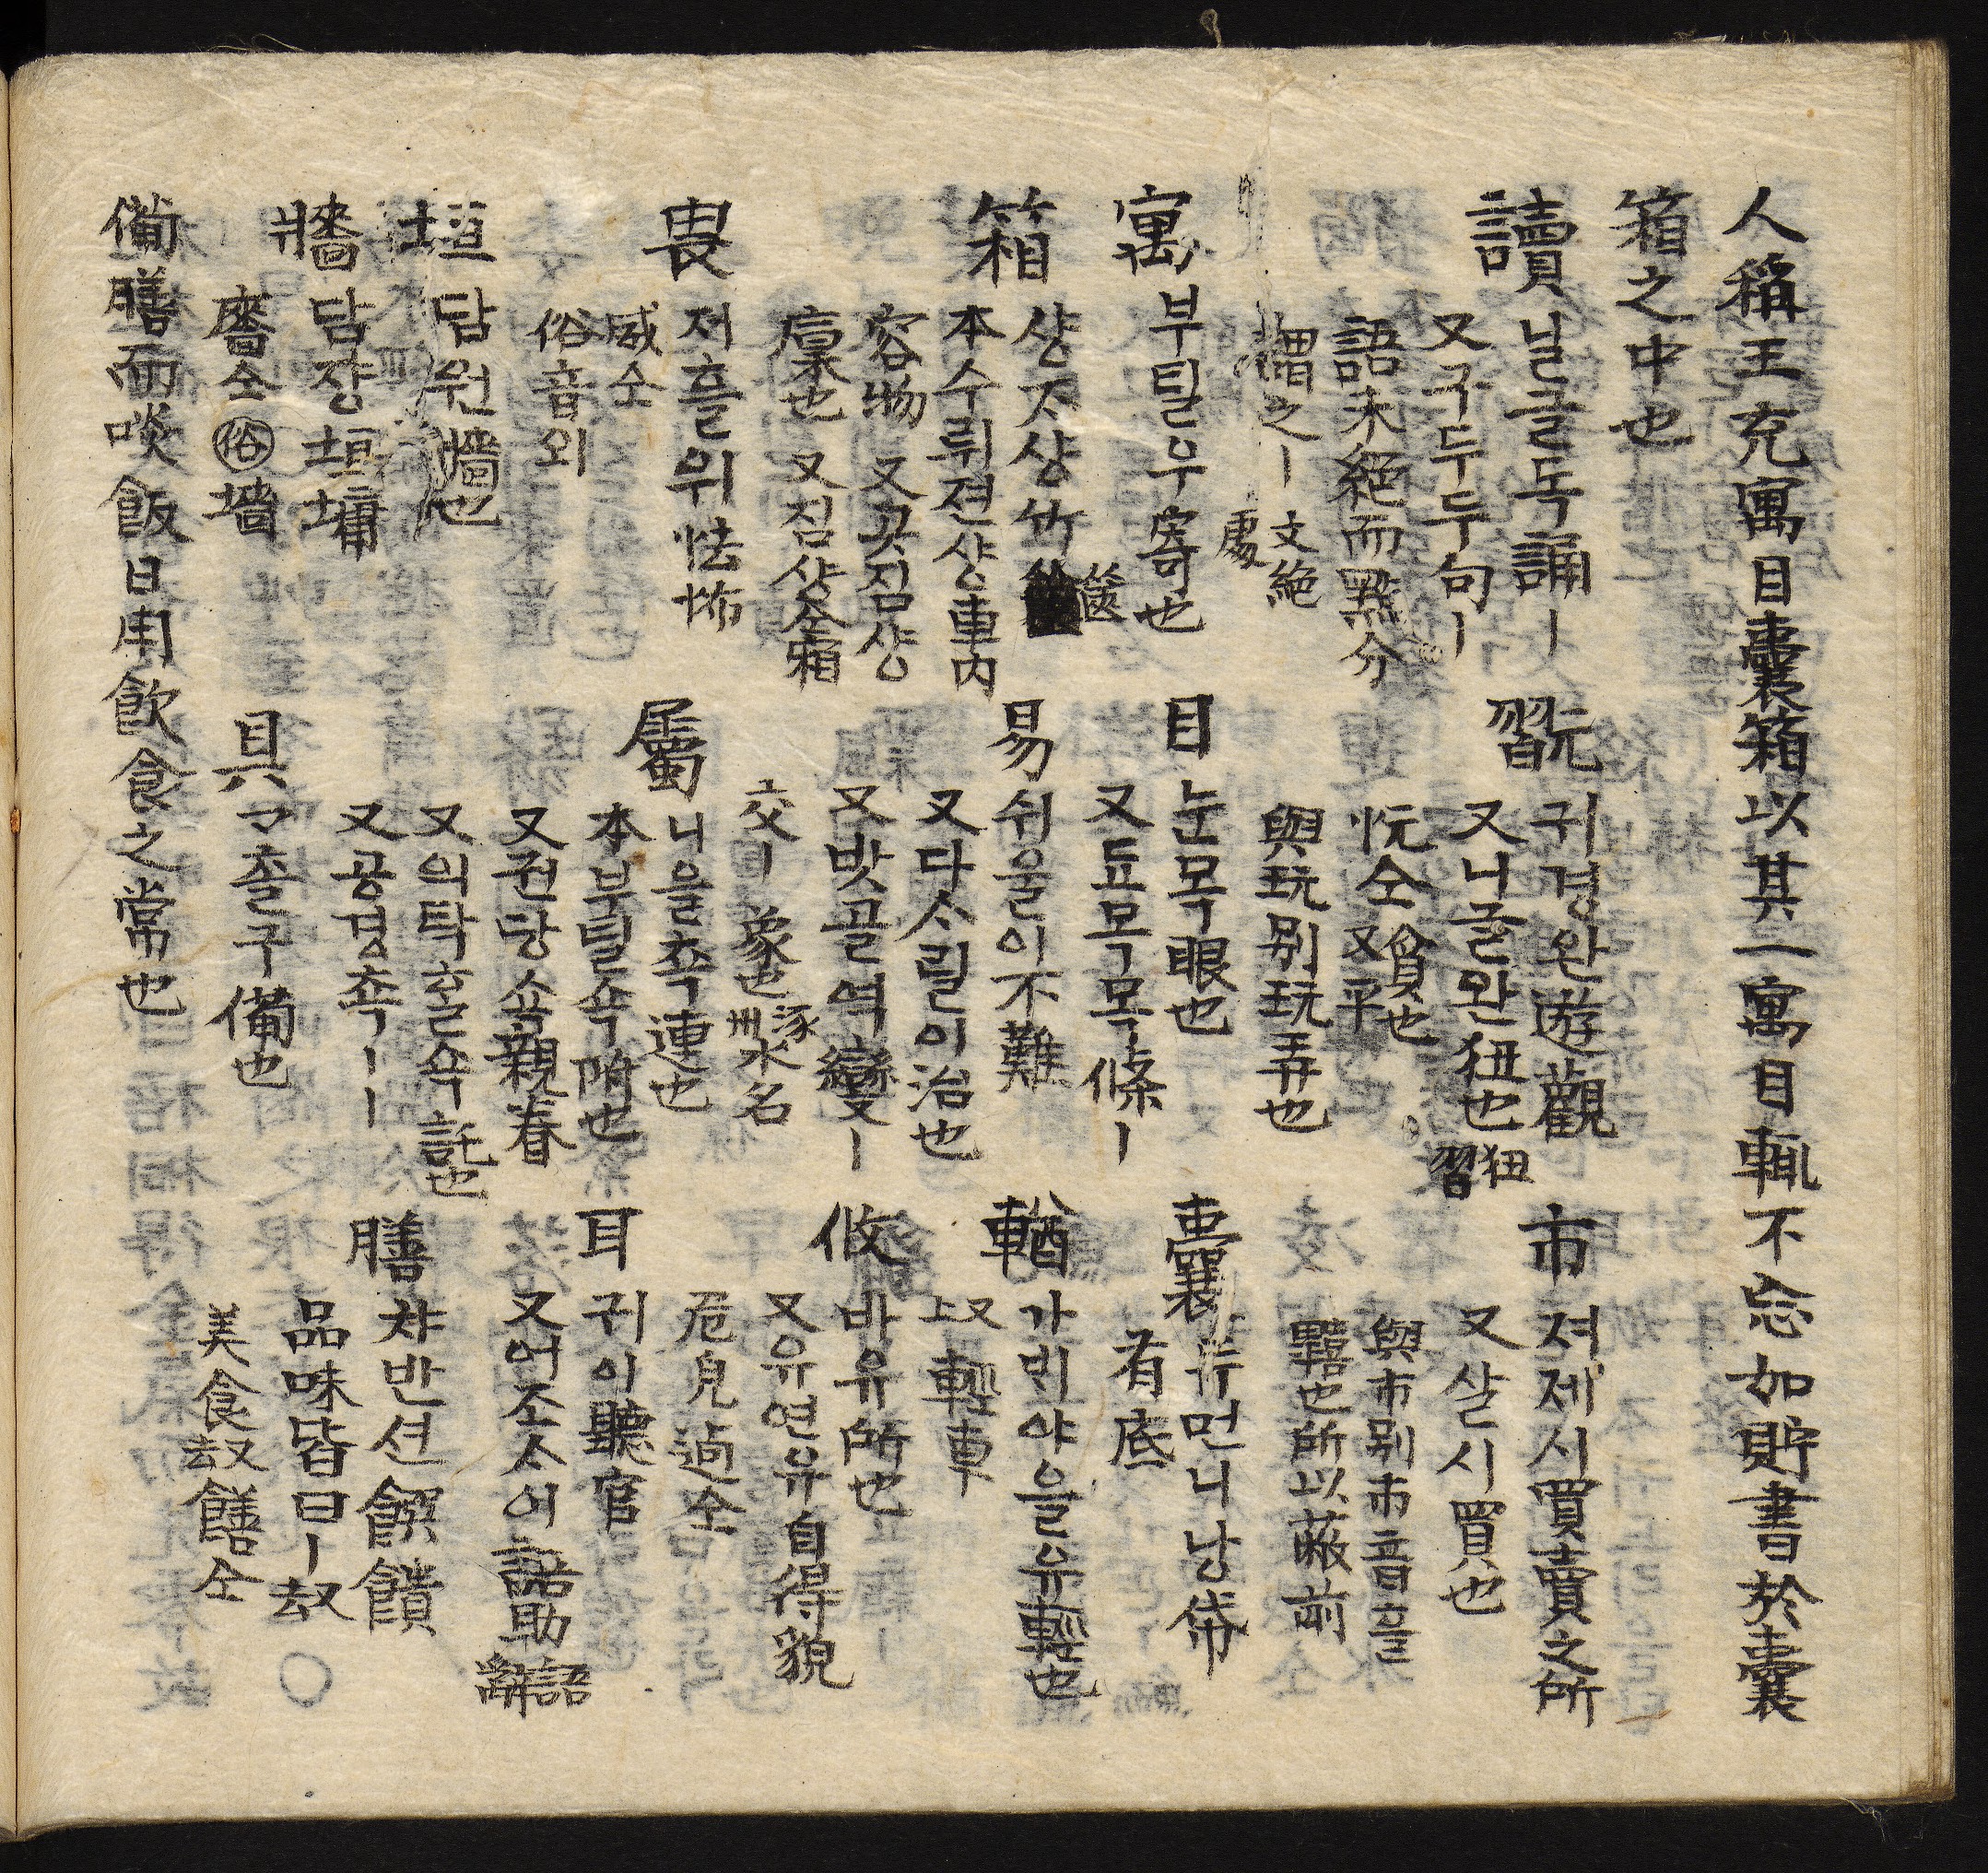 人稱王充寓目囊箱以其一寓目輒不忘如貯書於囊
箱之中也
讀 닐글독誦ㅣ
又구두두句ㅣ
語未絕而點分
謂之ㅣ 文絕處
翫 귀경완遊觀
又니글완狃也 狃習
忨仝 貪也 又平
與玩别玩弄也
市 져제시買賣之所
又살시買也
與巿别巿音블
韠也所以蔽前
寓 부틸우寄也
目 눈목眼也
又됴목목條ㅣ
囊 쥬먼니낭帒
有底
箱 샹ᄌᆞ샹竹篋
本수뤼젼샹車内
容物 又곳집샹
廩也 又집샹仝廂
易 쉬울이不難
又다ᄉᆞ릴이治也
又밧골역變ㅣ
交ㅣ 象也 涿州水名
輶 가ᄇᆡ야을유輕也
又上 輕車
攸 바유所也
又유연유自得貌
危皃逌仝
畏 저흘위怯怖
威仝
俗音외
屬 니을쵹連也
本부틸쇽附也
又권당쇽親眷
又의탁ᄒᆞᆯ쇽託也
又공경쵹ㅣㅣ
耳 귀이聽官
又어조ᄉᆞ이語助 語辭
垣 담원墻也
牆 담쟝垣墉
廧仝㊙俗墻
具 ᄀᆞ촐구備也
膳 챠반션饌饋
品味皆曰ㅣ
美食 饍仝
備膳而啖飯日用飮食之常也